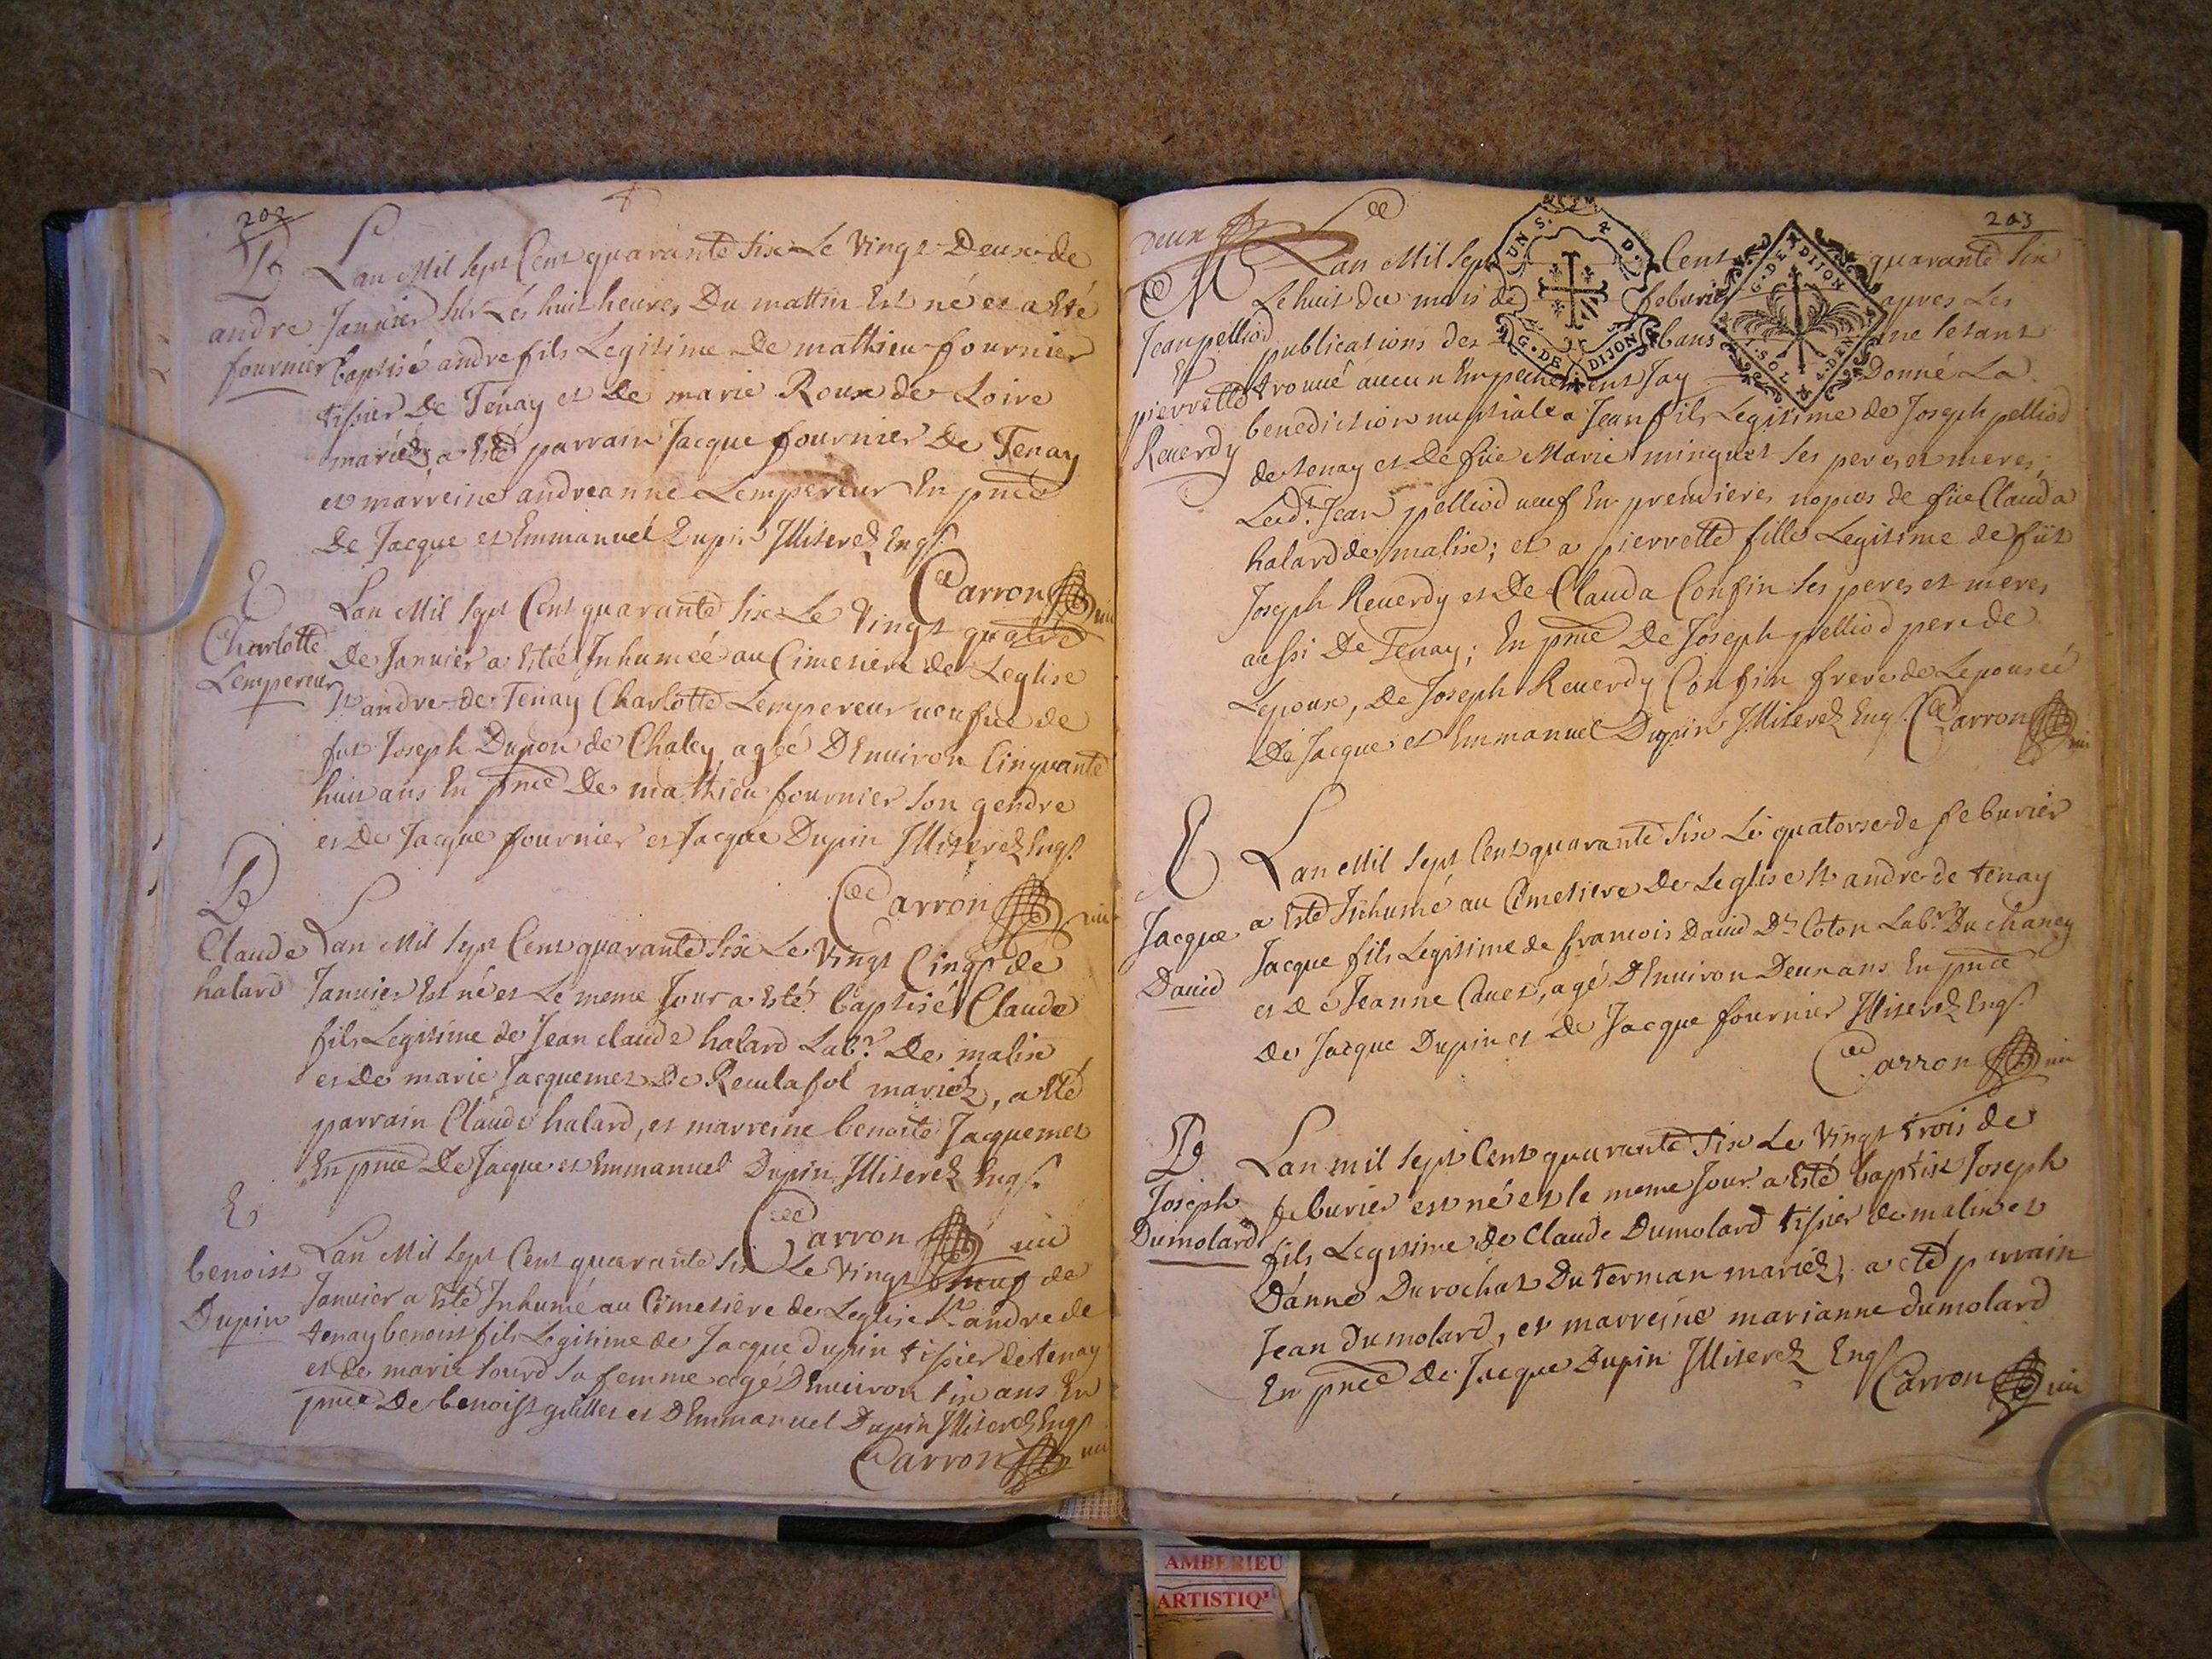 202
B
andre
fournier
Lan Mil sept Cent quarante six Le Vingt Deux de
Januier sur Les huit heures Du mattin Est né et a Eté
baptisé andre fils Legitime De mathieu fournier
tissier De Tenay et De marie Roux de Loire
mariéz, a Esté parrain Jacque fournier De Tenay
et marreine andreanne Lempereur En pnce
De Jacque et Emmanuel Dupin Illiterez Enqs
Carron
E
Charlotte
Lempereur
Lan Mil sept Cent quarante six Le Vingt quatre
De Januier a Estée Inhumée au Cimetiere de Leglise
St andre de Tenay Charlotte Lempereur ueufue de
fut Joseph Dupon de Chaley, agée DEnuiron Cinquante
huit ans En pnce De mathieu fournier son gendre
et De Jacque fournier et Jacque Dupin Illiterez Enqs
Carron
B
Claude
halard
Lan Mil sept Cent quarante six Le Vingt Cinq de
Januier Est né et Le meme Jour a Esté baptisé Claude
fils Legitime de Jean claude halard Labr De malix
et De marie Jacquemet De Reculafol mariéz, a Eté
parrain Claude halard, et marreine benoite Jacquemet
En pnce De Jacque et Emmanuel Dupin Illiterez Enqs
Carron
E
benoist
Dupin
Lan Mil sept Cent quarante six Le Vingt neuf de
Januier a Esté Inhumé au Cimetiere de Leglise St andre de
tenay benoist fils Legitime de Jacque dupin tissier de tenay
et de marie tourd sa femme agé DEnuiron six ans En
pnce De benoist et DEmmanuel Dupin Illiterez Enqs
Carron
203
Deux
UNS. R D.
G. DE DIJON
G. DE DIJON
M
Jean pelliod
Et
pierrette
Reuerdy
Lan Mil sept Cent quarante six
Le huit du mois de feburier apres Les
publications des bans ne letant
trouué aucun Empechement Jay Donné La
benediction nuptiale a Jean fils Legitime de Joseph pelliod
de tenay et De füe Marie minguet ses peres et meres;
Led. Jean pelliod ueuf En premieres nopces de füe Clauda
halard de malix; et a pierrette fille Legitime de füt
Joseph Reuerdy et De Clauda Confin ses peres et meres
aussi De Tenay; En pnce De Joseph pelliod pere de
Lepoux, De Joseph Reuerdy Confin frere de Lepousée
De Jacque et Emmanuel Dupin Illiterez Enq. Carron
E
Jacque
Dauid
Lan Mil sept Cent quarante six Le quatorse de feburier
a Esté Inhumé au Cimetiere De Leglise St andre de tenay
Jacque fils Legitime de francois Dauid Dt Coton Labr Du chaney
et De Jeanne Cauet, agé DEnuiron Deux ans En pnce
De Jacque Dupin et De Jacque fournier Illiterez Enqs
Carron
B
Joseph
Dumolard
Lan mil sept Cent quarante six Le Vingt trois de
feburier est né et le meme Jour a Esté baptise Joseph
fils Legitime De Claude Dumolard tissier de malix et
Danne Durochat Du terman mariéz, a eté parrain
Jean Dumolard, et marreine marianne dumolard
En pnce De Jacque Dupin Illiterez Enqs
Carron
AMBERIEU
ARTISTIQ'